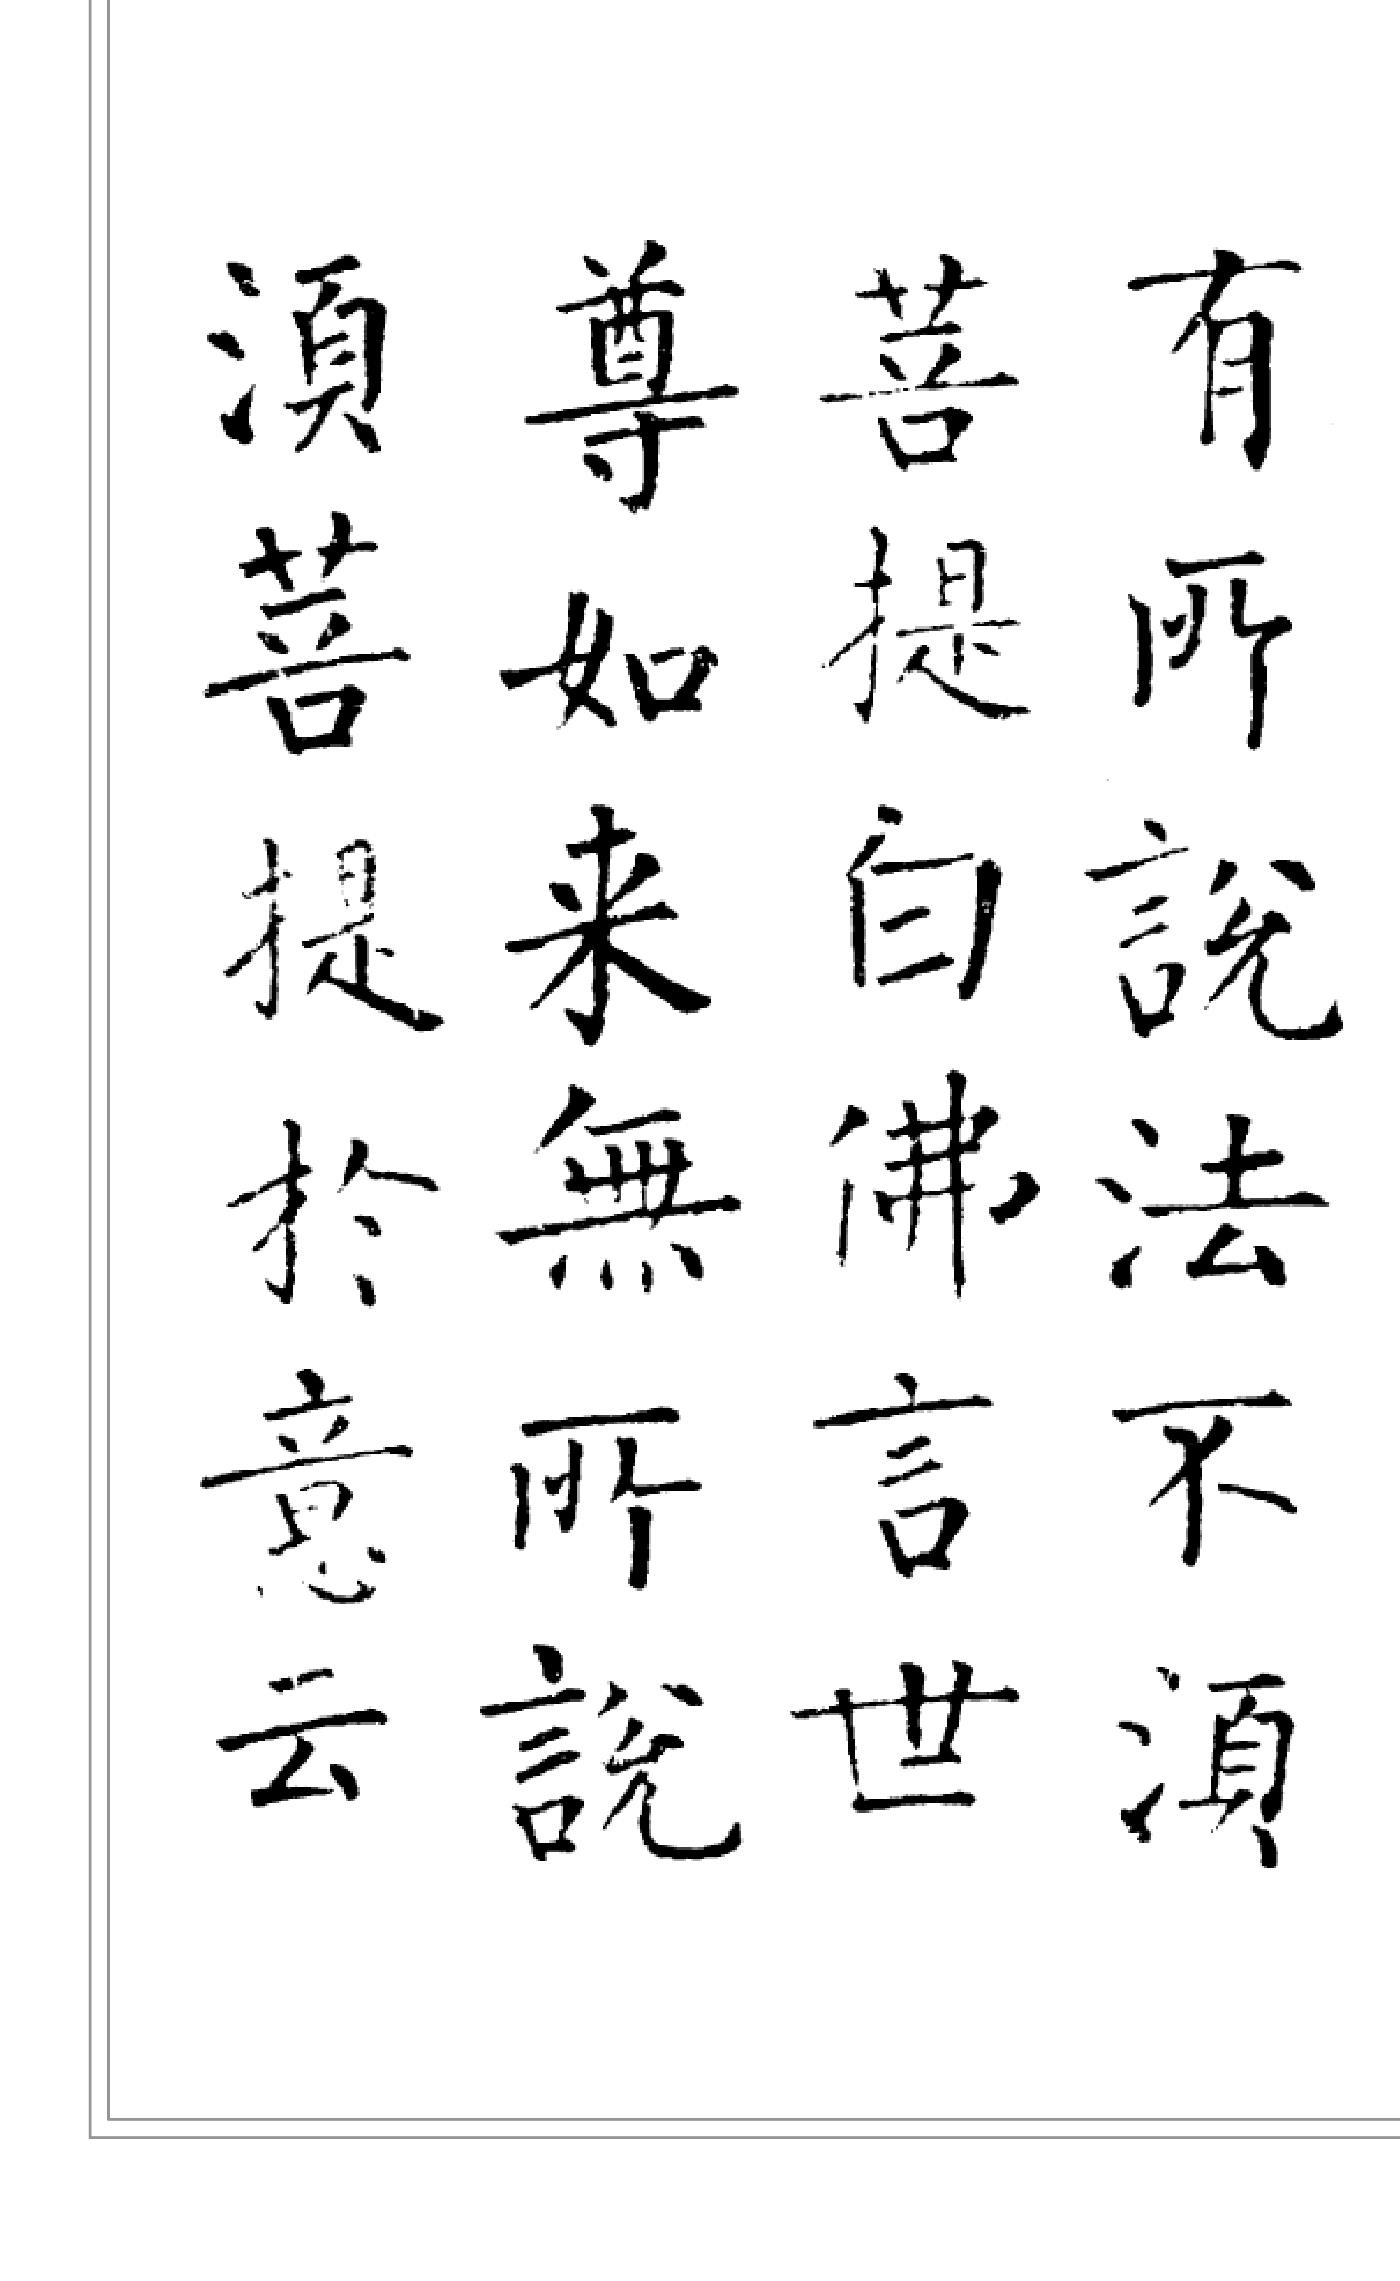 有所說法不湏
菩提白佛言世
尊如来無所說
湏菩提於意云